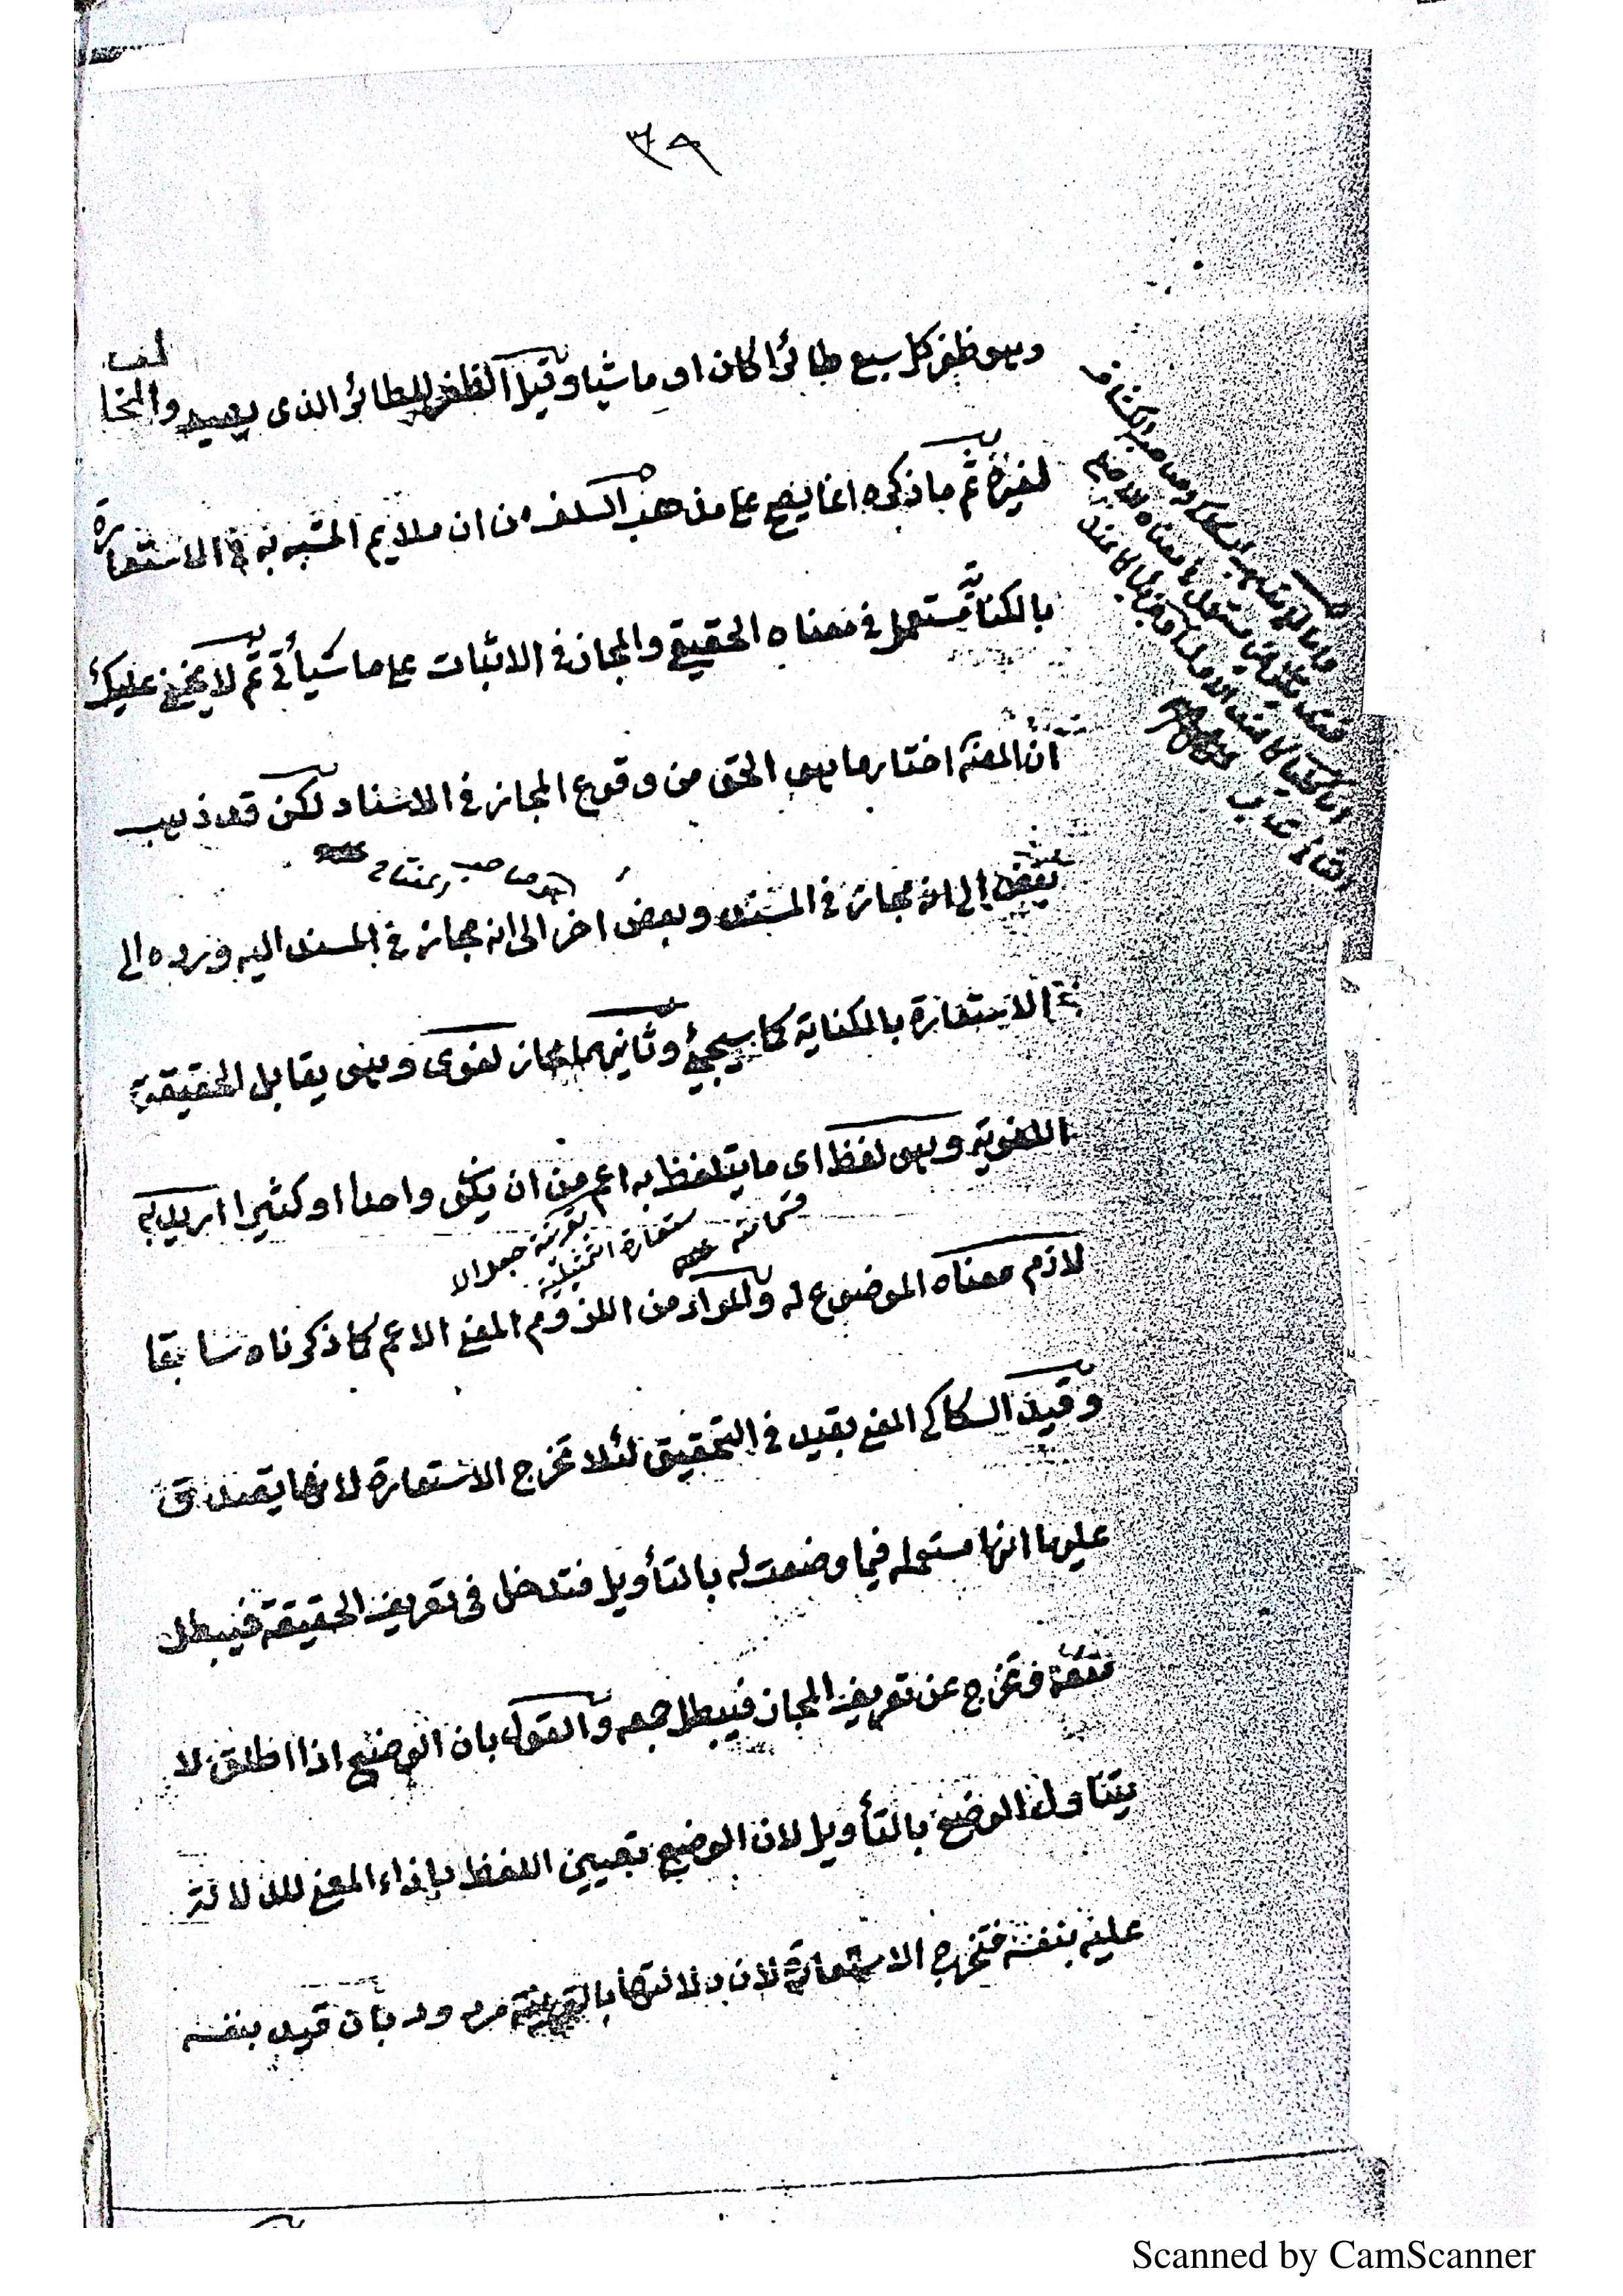 ٣٩
وهو ظفر كل سبع طائرا كان او ماشيا وقيل الظفر للطائر الذى يصيد والمخلب
لغيره ثم ما ذكره انما يصح على مذهب السلف من ان ملايم المشبه به فى الاستعارة
بالكناية مستعمل فى معناه الحقيقى والمجاز فى الاثبات على ما سيأتى ثم لا يخفى عليك
ان المصنف اختار ما هو الحق من وقوع المجاز فى الاسناد لكن قد ذهب
بعض الى انه مجاز فى المسند وبعض اخر الى انه مجاز فى المسند اليه ورده الى
هو صاحب المفتاح
الاستعارة بالكناية كما سيجئ وثانيهما مجاز لغوى وهو يقابل الحقيقة
اللغوية وهو لفظ اى ما يتلفظ به اعم من ان يكون واحدا او كثيرا اريد به
بقرينة جعل الا
ستعارة التمثيلية
قسما منه
لازم معناه الموضوع له والمراد من اللزوم المعنى الاعم كما ذكرناه سابقا
وقيد السكاكى المعنى بقيد فى التحقيق لئلا تخرج الاستعارة لانها يصدق
عليها انها مستعملة فيما وضعت له بالتأويل فتدخل فى تعريف الحقيقة فيبطل
منعه فتخرج عن تعريف المجاز فيبطل جمعه والقول بان الوضع اذا اطلق لا
يتناول الوضع بالتأويل لان الوضع تعيين اللفظ بازاء المعنى للدلالة
عليه بنفسه فتخرج الاستعارة لان دلالتها بالقرينة مردود بان قيد بنفسه
واما على مذهب السكاكى وصاحب الكشاف
Scanned by CamScanner